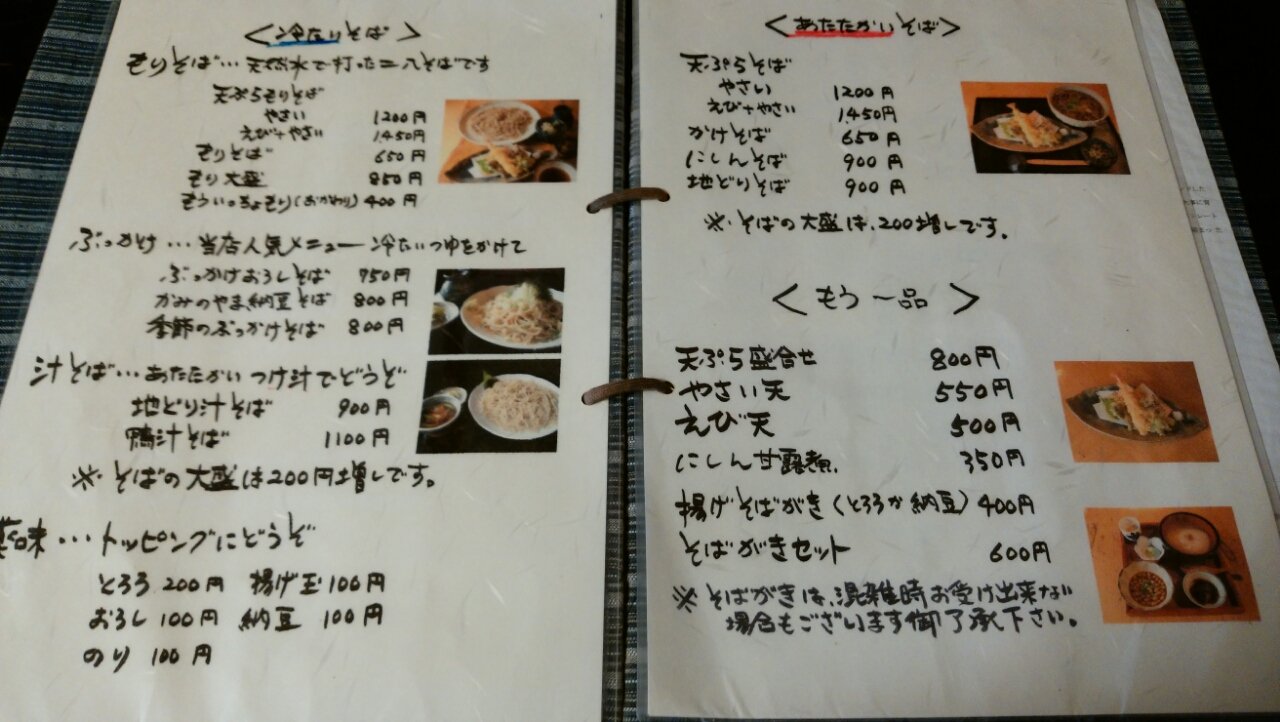 <冷たいそば>
もりそば…天然水で打った二八そばです
天ぷらもりそば
やさい 1200円
えび+やさい 1,450円
もりそば 650円
もり大盛 850円
もういっちょもり(おかわり)400円
ぶっかけ…当店人気メニュー冷たいつゆをかけて
ぶっかけおろしそば 750円
かみのやま納豆そば 800円
季節のぶっかけそば 800円
汁そば…あたたかいつけ汁でどうぞ
地どり汁そば 900円
鴨汁そば 1100円
※そばの大盛は200円増しです。
薬味…トッピングにどうぞ
とろろ 200円 揚げ玉 100円
おろし 100円 納豆 100円
のり 100円
<あたたかいそば>
天ぷらそば
やさい 1200円
えび+やさい 1,450円
かけそば 650円
にしんそば 900円
地どりそば 900円
※そばの大盛は、200増しです。
<もう一品>
天ぷら盛合せ 800円
やさい天 550円
えび天 500円
にしん甘露煮 350円
揚げそばがき(とろろか納豆)400円
そばがきセット 600円
※そばがきは、混雑時お受け出来ない
場合もございます御了承下さい。